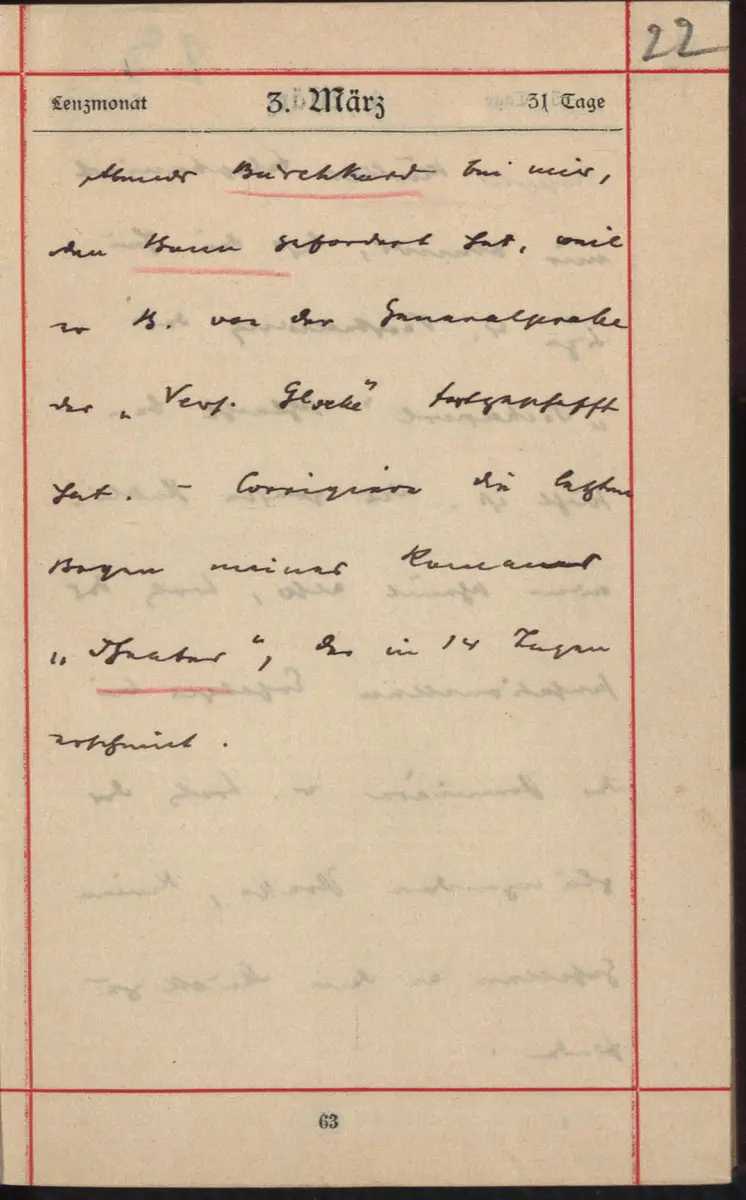 22
Lenzmonat 3. März 31 Tage
Abends Burckhard bei mir,
den Bauer gefordert hat, weil
er B. von der Generalprobe
der „Vers. Glocke“ fortgeschafft
hat. – Corrigiere die letzten
Bogen meines Romanes
„Theater“, der in 14 Tagen
erscheint.
63